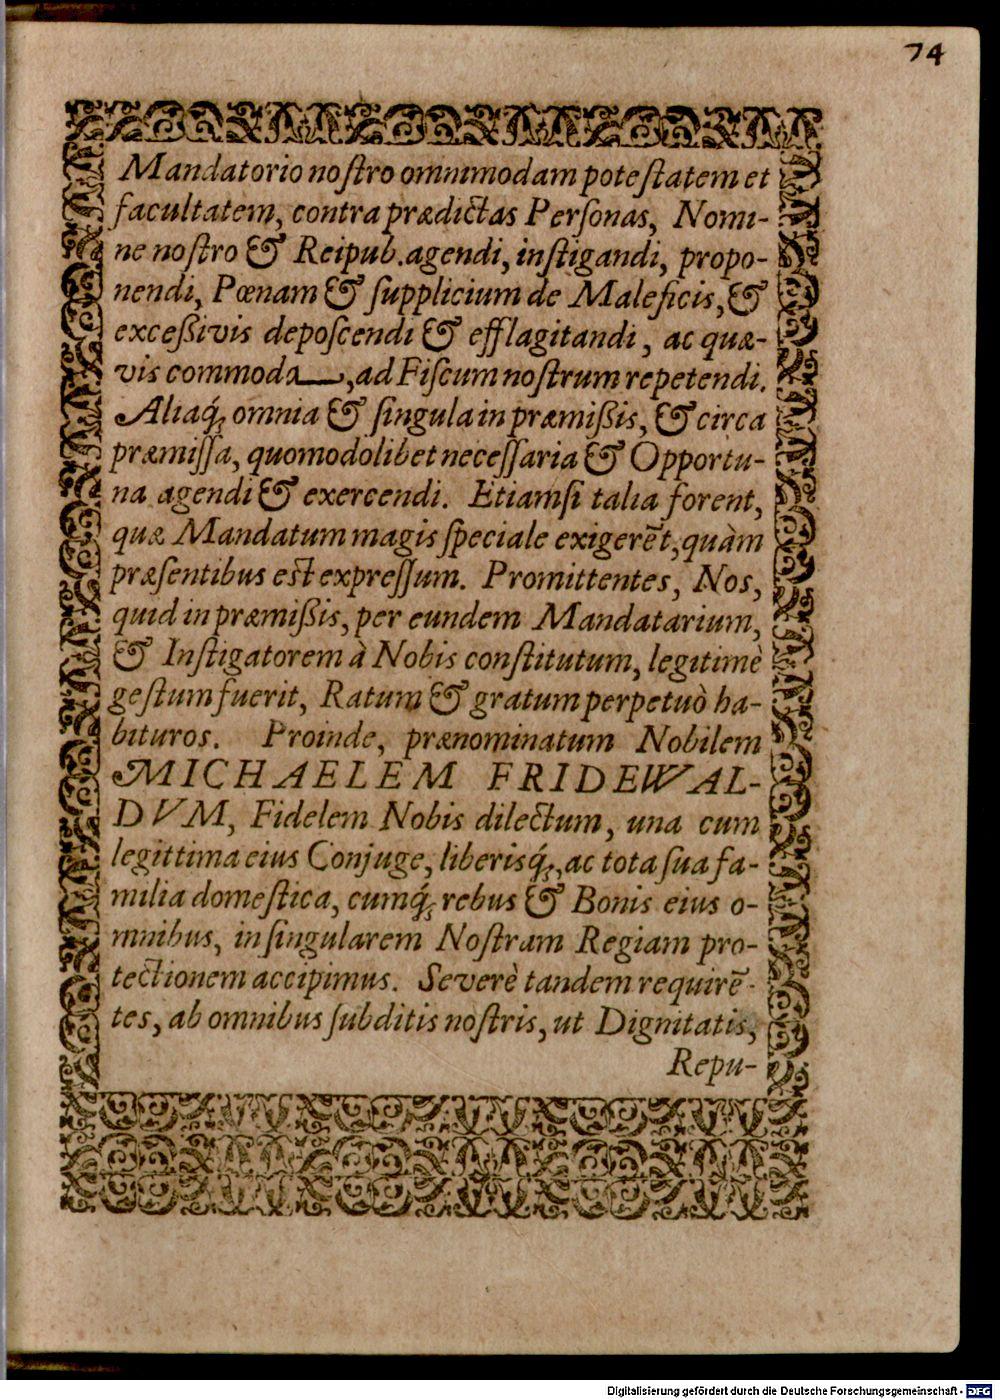 74
Mandatorio noſtro omnimodam poteſtatem et
facultatem, contra prædictas Perſonas, Nomi-
ne noſtro & Reipub. agendi, inſtigandi, propo-
nendi, Pœnam & ſupplicium de Maleficis, &
exceßivis depoſcendi & efflagitandi, ac quæ-
vis commoda, ad Fiſcum noſtrum repetendi.
Aliaq́; omnia & ſingula in præmißis, & circa
præmiſſa, quomodolibet neceſſaria & Opportu-
na agendi & exercendi. Etiamſi talia forent,
quæ Mandatum magis ſpeciale exigerēt, quàm
præſentibus est expreſſum. Promittentes, Nos,
quid in præmißis, per eundem Mandatarium,
& Inſtigatorem à Nobis conſtitutum, legitimè
geſtum fuerit, Ratum & gratum perpetuò ha-
bituros. Proinde, prænominatum Nobilem
MICHAELEM FRIDEWAL-
DVM, Fidelem Nobis dilectum, una cum
legittima eius Conjuge, liberisq́;, ac tota ſua fa-
milia domeſtica, cumq́; rebus & Bonis eius o-
mnibus, in ſingularem Noſtram Regiam pro-
tectionem accipimus. Severè tandem requirē-
tes, ab omnibus ſubditis noſtris, ut Dignitatis,
Repu-
Digitalisierung gefördert durch die Deutsche Forschungsgemeinschaft - DFG